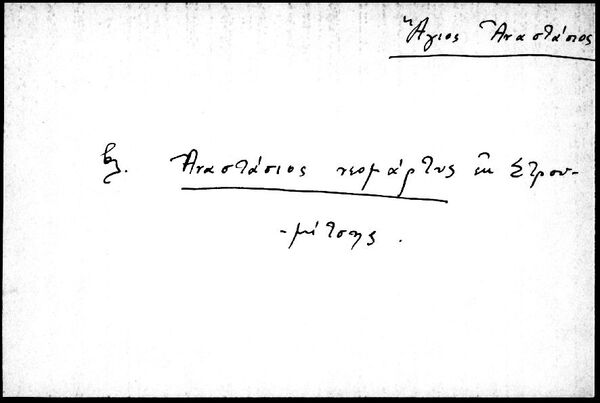 Ἅγιος Ἀναστάσιος
βλ. Ἀναστάσιος νεομάρτυς ἐκ Στρου-
-μίτσης.